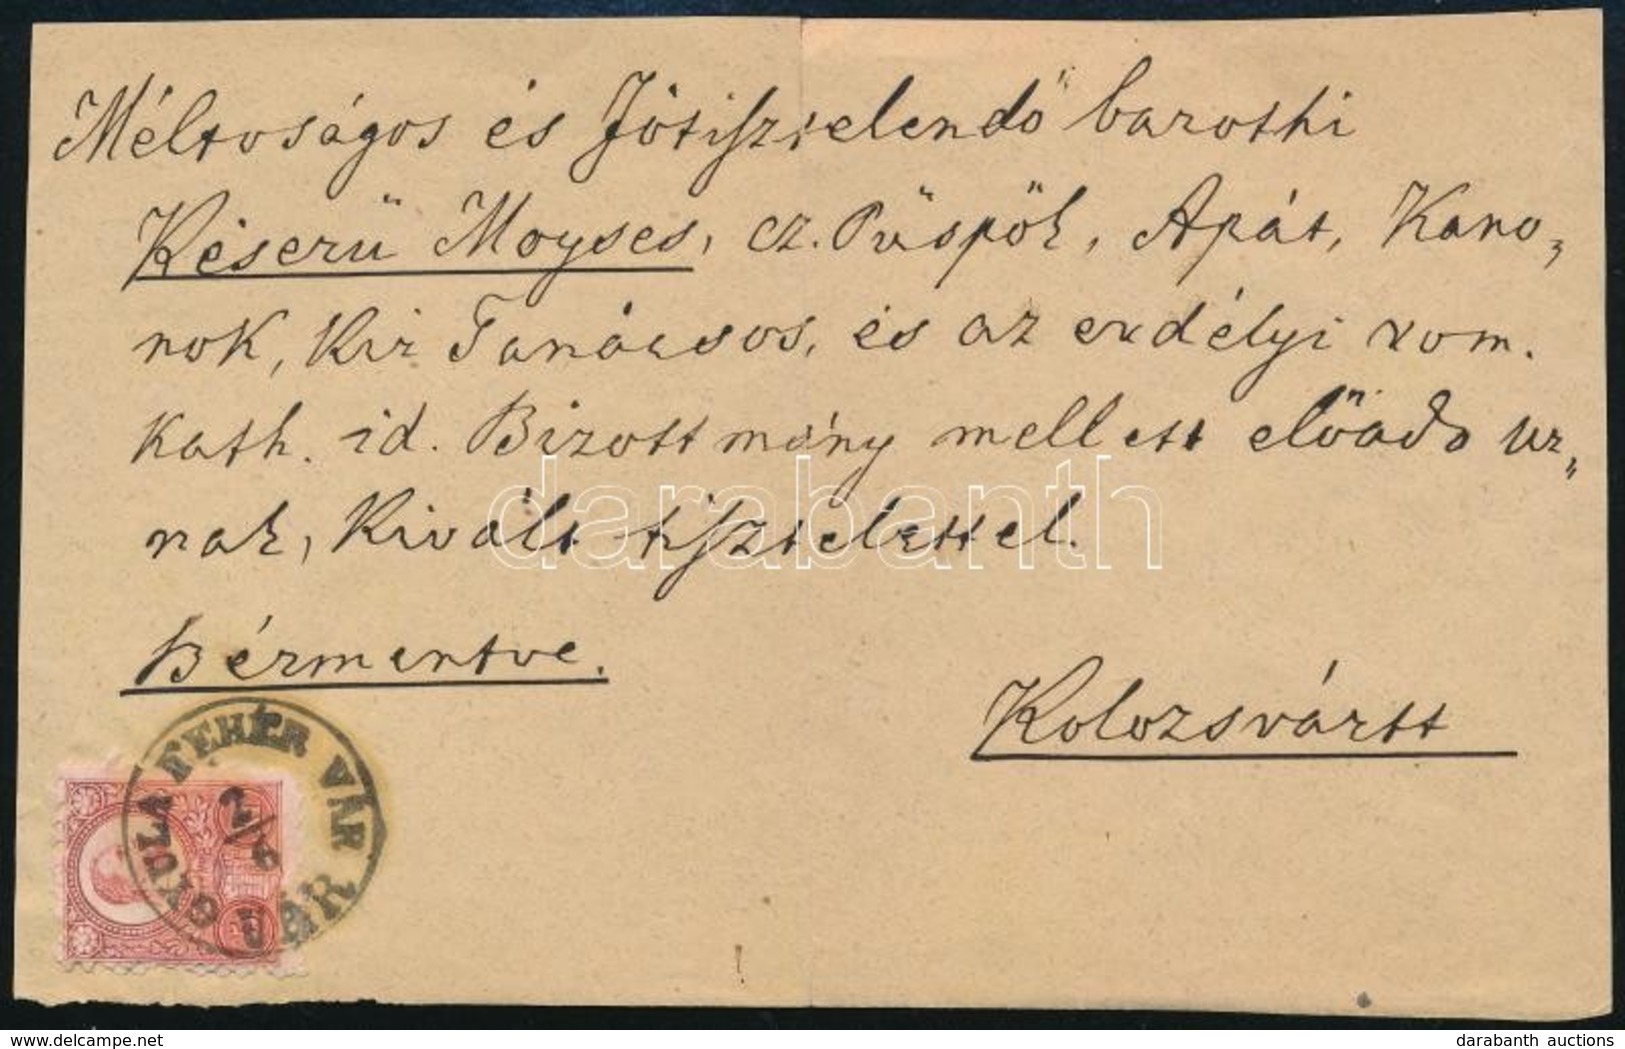 Méltoságos és Fötisztelendő barothi
Keserü Moyses, cz. Püspök, Apát, Kano„
nok, Kir Tanácsos, és az erdélyi rom.
Kath. id. Bizottmány mellett előadó ur„
nak, Kivált tisztelettel.
darabanth
Bérmentve.
Kolozsvártt
GYULA FEHÉR VÁR
2/6
VÁR
delcampe.net
darabanth auctions